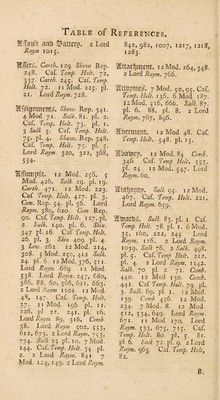 TABLE OF REFERENCES.
Assault and Battery. 2 Lord
Raym 1015.
Assets. Carth. 129. Show Rep.
248. Cas. Temp. Holt. 72,
337. Carth. 245. Cas. Temp.
Holt. 72. 11 Mod. 225. pl.
21. Lord Raym. 728.
Assignments. Show. Rep. 341.
4 Mod 71. Salk. 81. pl. 2.
Cas. Temp. Holt. 73. pl. 1.
3 Salk 5. Cas. Temp. Holt.
75. pl. 4. Skin. Rep. 348.
Cas. Temp. Holt. 73. pl. 5.
Lord Raym. 320, 322, 368,
554.
Assumpsit. 12 Mod. 256, 5
Mod. 216. Salk. 29. pl. 19.
Carth. 471. 12 Mod. 241.
Cas. Temp. Holt. 427. pl. 3.
Com. Rep. 54. pl. 36. Lord
Raym. 389, 620. Com Rep.
90. Cas. Temp. Holt. 127. pl.
2. Salk. 140. pl. 6. Skin.
347. pl. 16. Cas. Temp Holt.
26. pl. 3. Skin 409 pl. 4.
12 Mod. 214.
308. 5 Mod. 230, 412. Salk.
24. pl. 6. 12 Mod 376, 511.
Lord Raym 669. 12 Mod.
538. Lord Raym. 247, 680,
386, 88, 60, 566, 611, 663.
2 Lord Raym 1101. 11 Mod
48, 147. Cas. Temp. Holt.
37. 11 Mod. 171. pl. 11,
226. pl. 22, 241. pl. 16.
Lord Raym. 89, 316. Comb
38. Lord Raym 502, 553,
612, 673. 2 Lord Raym. 755,
774. Salk 25. pl. 10, 7 Mod
144. Cas. Temp. Holt 34. pl.
2. 2 Lord Raym. 841. 7
Mod. 124, 149. 2 Lord Raym.
842, 982, 1007, 1217, 1218,
1283.
Attachment. 12 Mod. 164, 348.
2 Lord Raym. 766.
Attornies. 7 Mod. 50, 95. Cas.
Temp. Holt. 136. 6 Mod 187.
12 Mod. 516, 666. Salk. 87.
pl. 6, 88. pl. 8. 2 Lord
Raym. 767, 896.
Averment. 12 Mod. 48. Cas.
Temp. Holt. 548. pl. 15.
Avowry. 12 Mod. 84. Comb.
346. Cas. Temp Holt. 555.
pl. 24. 12 Mod. 547. Lord
Raym. 60.
Authority. Salk 95. 12 Mod.
467. Cas. Temp. Holt. 221.
Lord Raym. 659.
Awards. Salk. 83. pl. 1. Cas.
Temp Holt. 78. pl. 1. 6 Mod.
35, 160, 221, 245. Lord
Raym 116. 2 Lord Raym.
1039. Salk 76. 2 Salk. 998.
pl. 5. Cas. Temp Holt. 212.
pl. 4. 2 Lord Raym. 1142.
Salk. 70. pl. 2. 71. Comb.
440. 12 Mod. 130. Comb.
441. Cas. Temp Holt. 79. pl.
3. Salk. 69. pl. 1. 12 Mod.
139. Comb 456. 12 Mod.
234. 7 Mod. 8. 12 Mod
512, 534, 649. Lord Raym.
671. Holt 170. Lord
Raym. 533, 675, 715. Cas.
Temp. Holt. 80. pl. 7, 81.
pl. 6. Lord 72. pl. 9. 2 Lord
Raym. 965. Cas. Temp Holt,
82,
B.